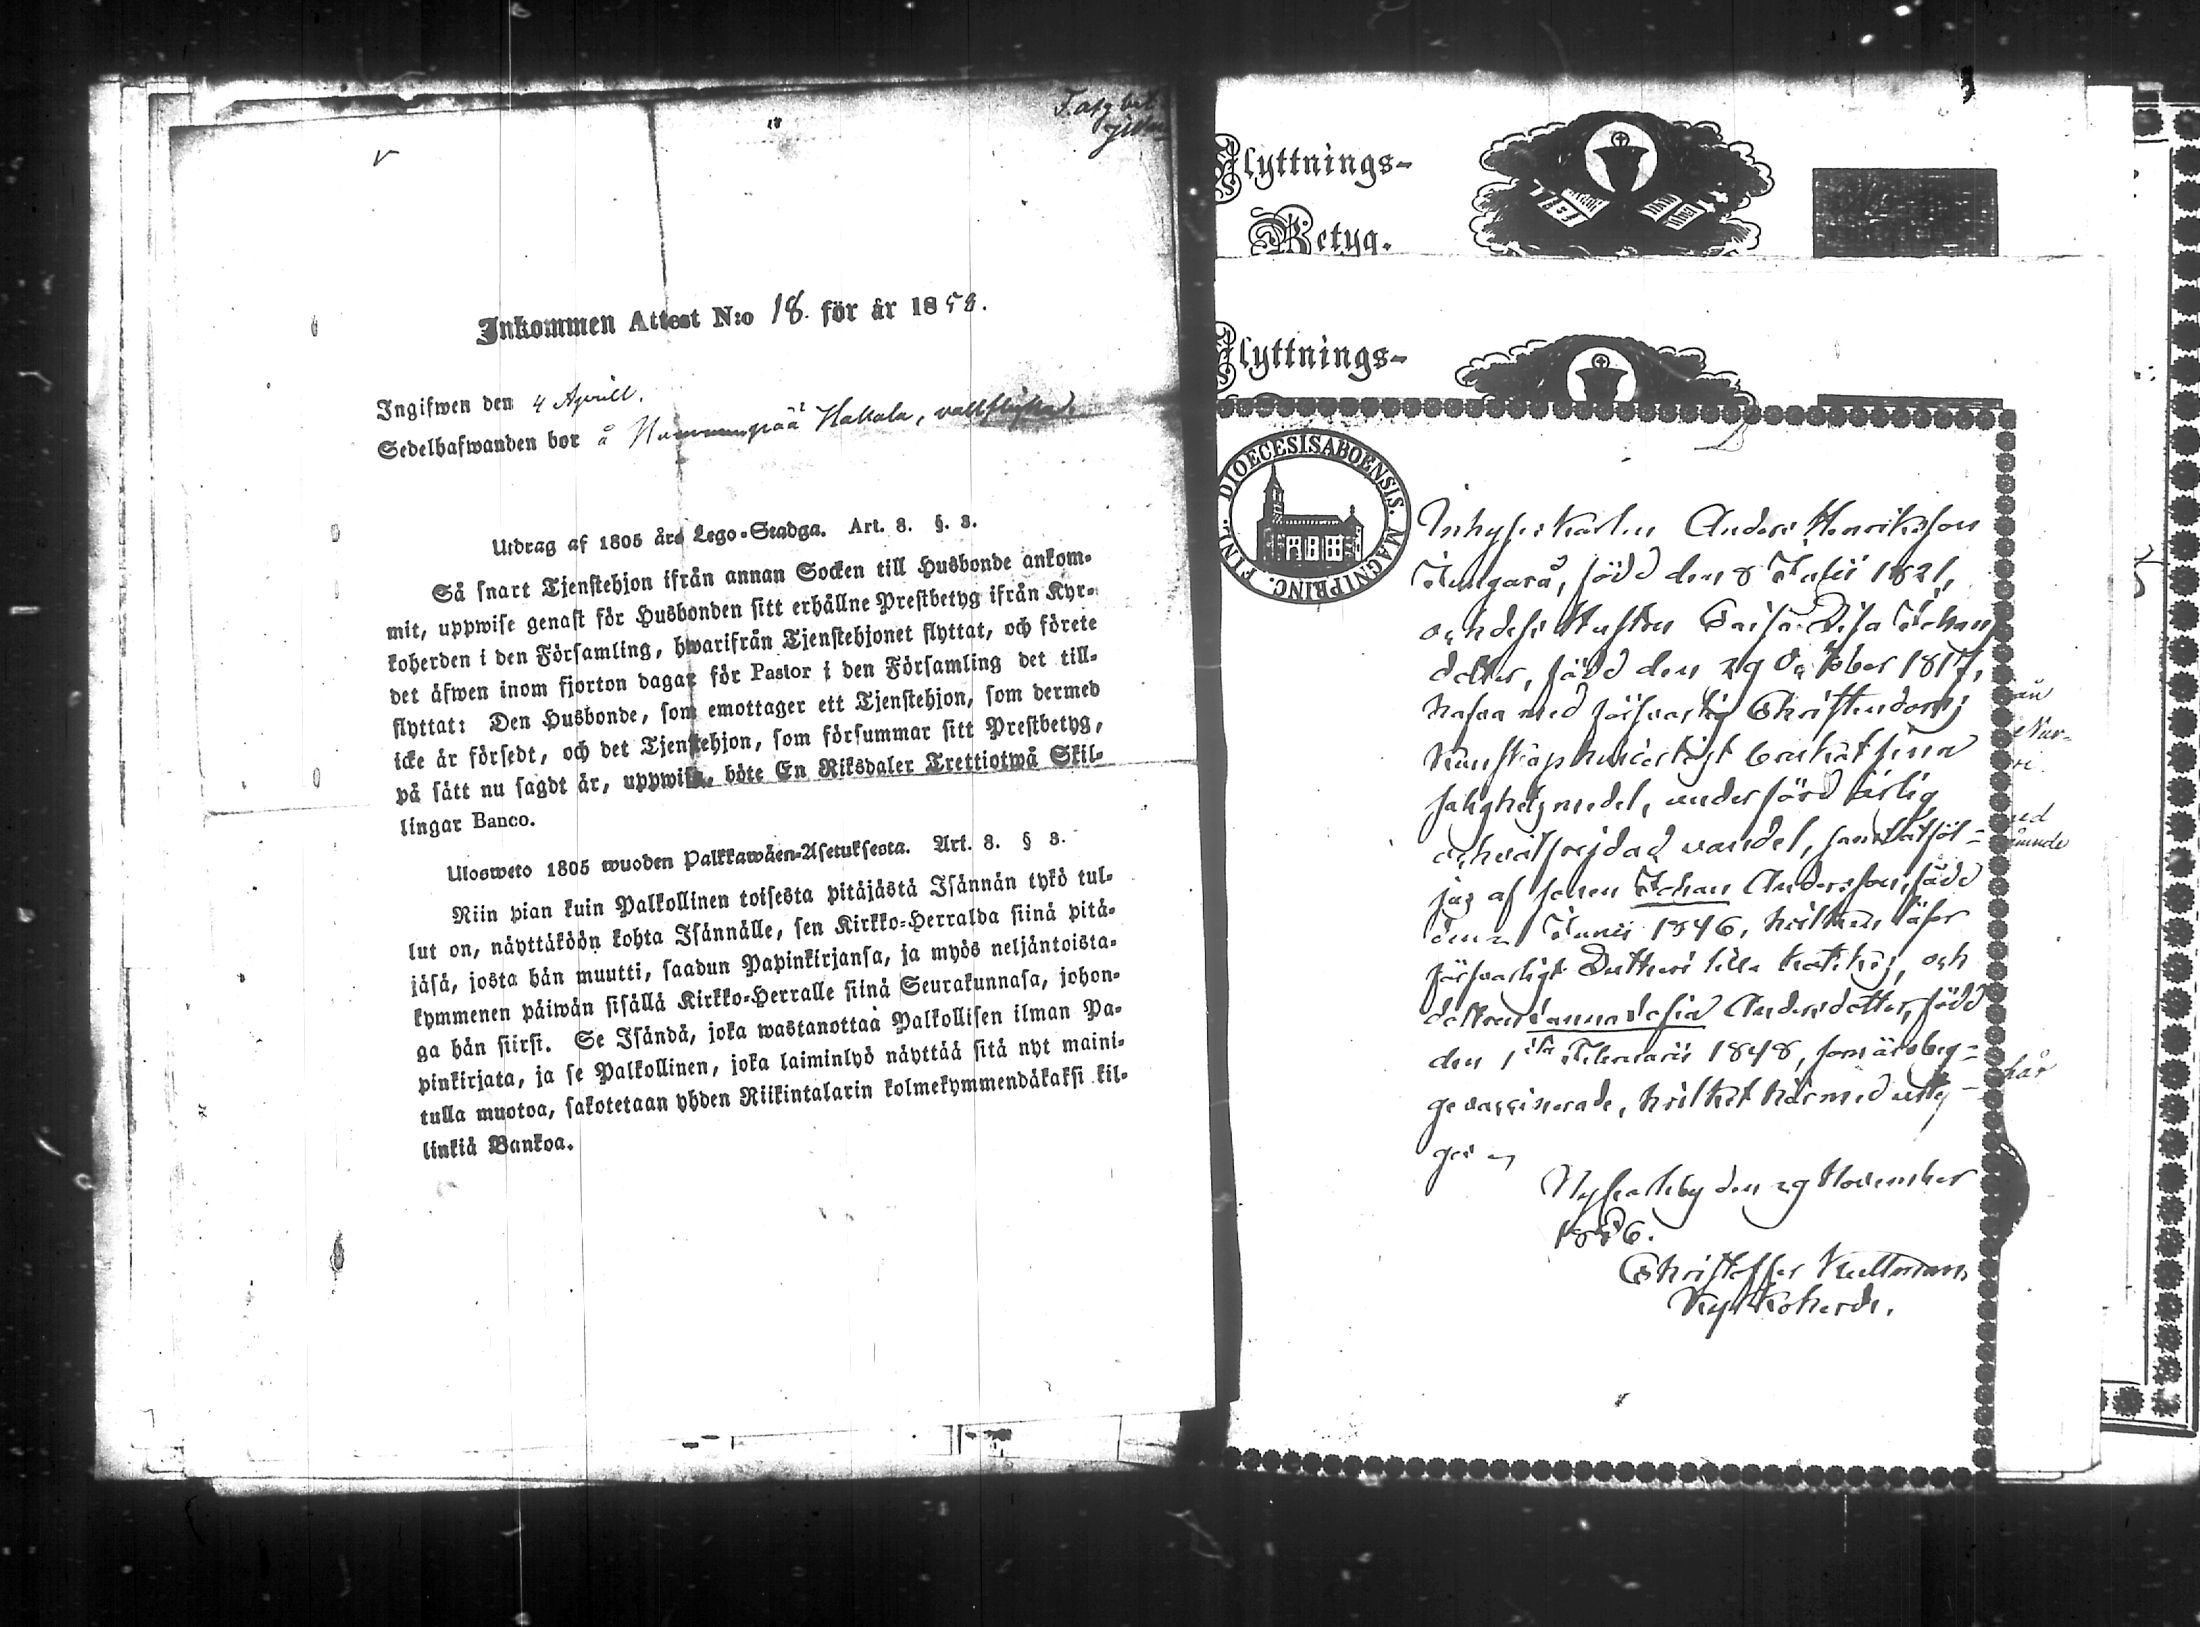 Inkommen Attest N:o 18. för år 1858.
Ingifwen den 4 Aprill.
Sedelhafwanden bor å Hakala,
Utdrag af 1805 års Lego-Stadga. Art. 8. §. 3.
Så snart Tjenstehjon ifrån annan Socken till Husbonde ankom-
mit, uppwise genast för Husbonden sitt erhållne Prestbetyg ifrån Kyr-
koherden i den Församling, hwarifrån Tjenstehjonet flyttat, och förete
det äfwen inom fjorton dagar för Pastor i den Församling det till-
flyttat: Den Husbonde, som emottager ett Tjenstehjon, som dermed
icke är försedt, och det Tjenstehjon, som försummar sitt Prestbetyg,
på sätt nu sagdt är, uppwisa, böte En Riksdaler Trettiotwå Skil-
lingar Banco.
Ulosweto 1805 wuoden Palkkawäen-Asetuksesta. Art. 8. § 3.
Niin pian kuin Palkollinen toisesta pitäjästä Isännän tykö tul-
lut on, näyttäköön kohta Isännälle, sen Kirkko-Herralda siinä pitä-
jäsä, josta hän muutti, saadun Papinkirjansa, ja myös neljäntoista-
kymmenen päiwän sisällä Kirkko-Herralle siinä Seurakunnasa, johon-
ga hän siirsi. Se Isändä, joka wastanottaa Palkollisen ilman Pa-
pinkirjata, ja se Palkollinen, joka laiminlyö näyttää sitä nyt maini-
tulla muotoa, sakotetaan yhden Riikintalarin kolmekymmendäkaksi kil-
linkiä Bankoa.
Flyttnings-
Betyg.
Flyttnings-
DIOECESIS ABOENSIS. MAGNI PRINC. FINL.
Inhyses Karlen Anders Henriksson
Jungarå, född den 8 Julii 1821,
och dess Hustru Caisa Lisa Johans
dotter, född den 29 October 1817,
hafva med försvarlig Christendoms
Kunskap nitiskt begått sina
salighetsmedel, under förd ärlig
och välfrejdad vandel, samt åtföl-
jas af sonen Johan Andersson, född
den 2 Junii 1846, hvilken läser
försvarligt Lutheri lilla Kateches, och
dottren Sanna Sofia Andersdotter, född
den 1sta Februarii 1848, som äro beg-
ge vaccinerade, hvilket härmed bety-
gas
Nykarleby den 29 November
1856.
Christoffer
Kyrkoherde.